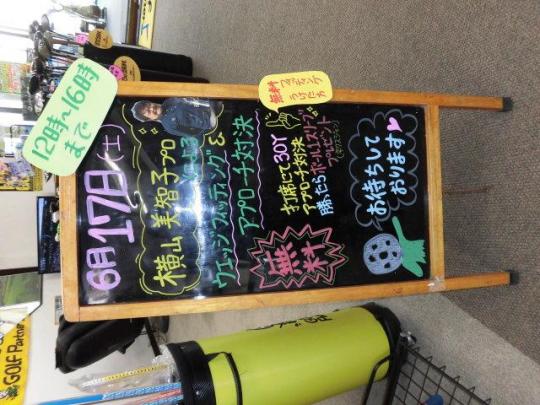 12時〜16時
まで
6月17日(土)
横山 美智子プロ
による
ウェッジフィッティング&
アプローチ対決
無料
フィッティング
うけた方
打席にて30Y
アプローチ対決
勝ったらボール1スリーブ
プレゼント
無料
お待ちして
おります
GOLF Partner